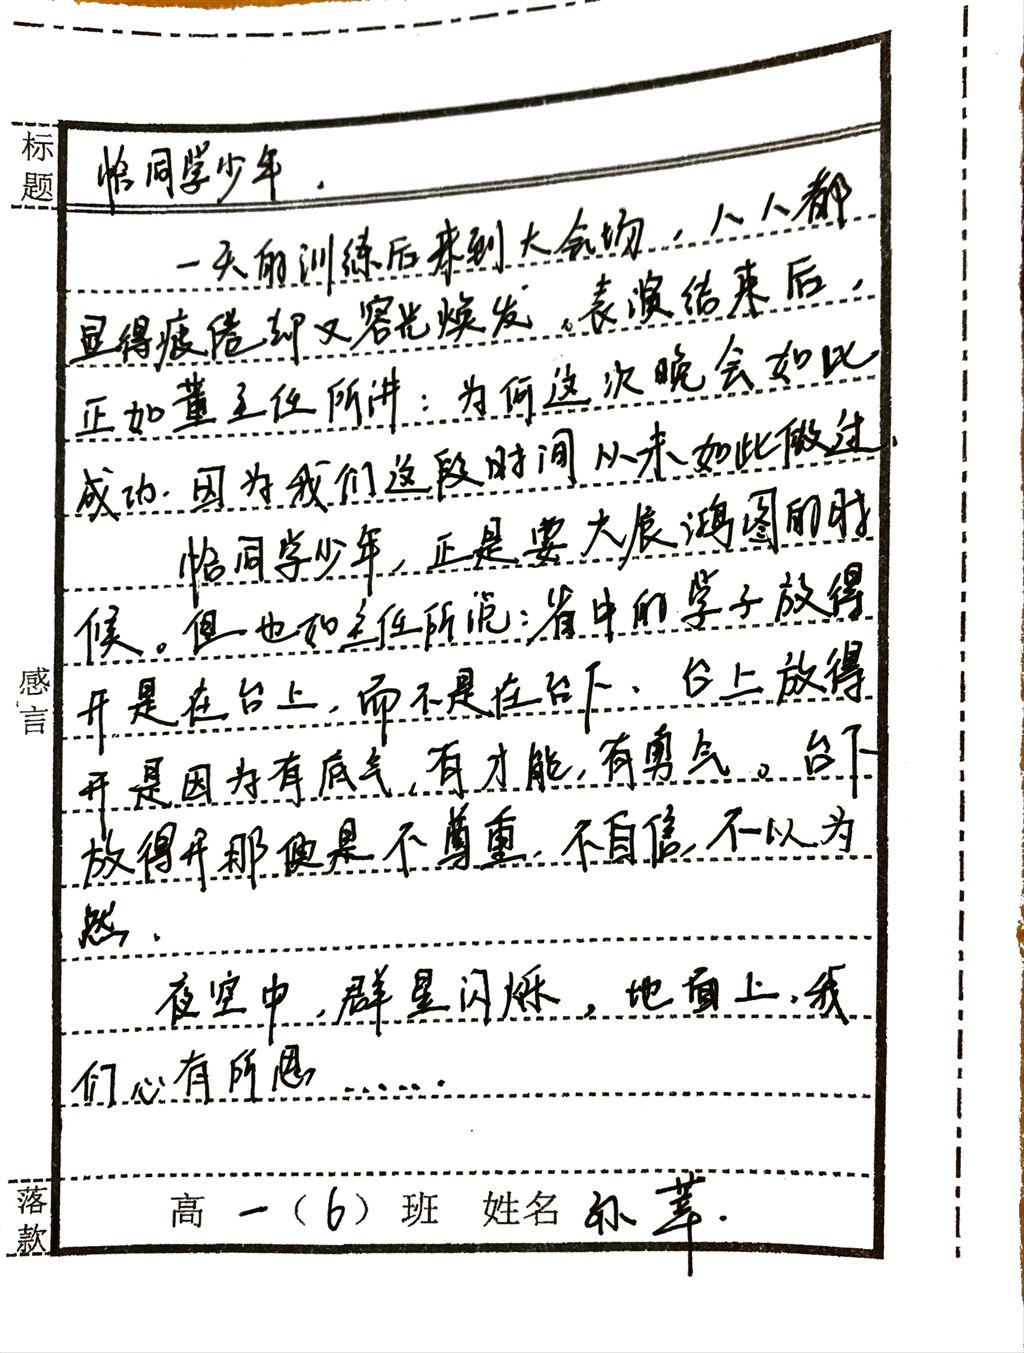 标题
恰同学少年.
一天的训练后来到大会场,人人都
显得疲倦却又容光焕发。表演结束后,
正如董主任所讲:为何这次晚会如此
成功.因为我们这段时间从未如此做过.
恰同学少年,正是要大展鸿图的时
候。但也如主任所说:省中的学子放得
开是在台上,而不是在台下.台上放得
开是因为有底气,有才能,有勇气。台下
放得开那便是不尊重,不自信,不以为
然.
感言
夜空中,群星闪烁,地面上,我
们心有所思…….
落款
高一(6)班 姓名 孙莘.